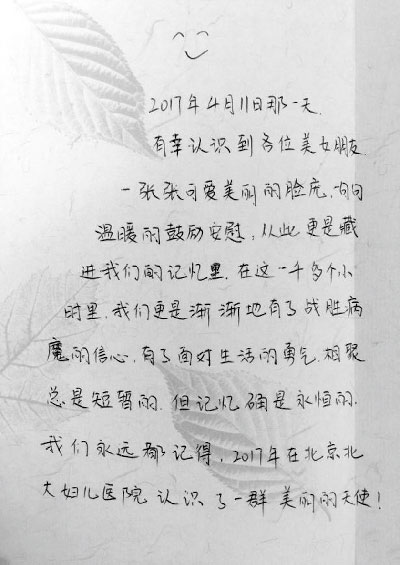 2017年4月11日那一天.
有幸认识到各位美女朋友
一张张可爱美丽的脸庞.句句
温暖的鼓励安慰,从此更是藏
进我们的记忆里.在这一千多个小
时里.我们更是渐渐地有了战胜病
魔的信心.有了面对生活的勇气.相聚
总是短暂的.但记忆确是永恒的.
我们永远都记得,2017年在北京北
大妇儿医院认识了一群美丽的天使!